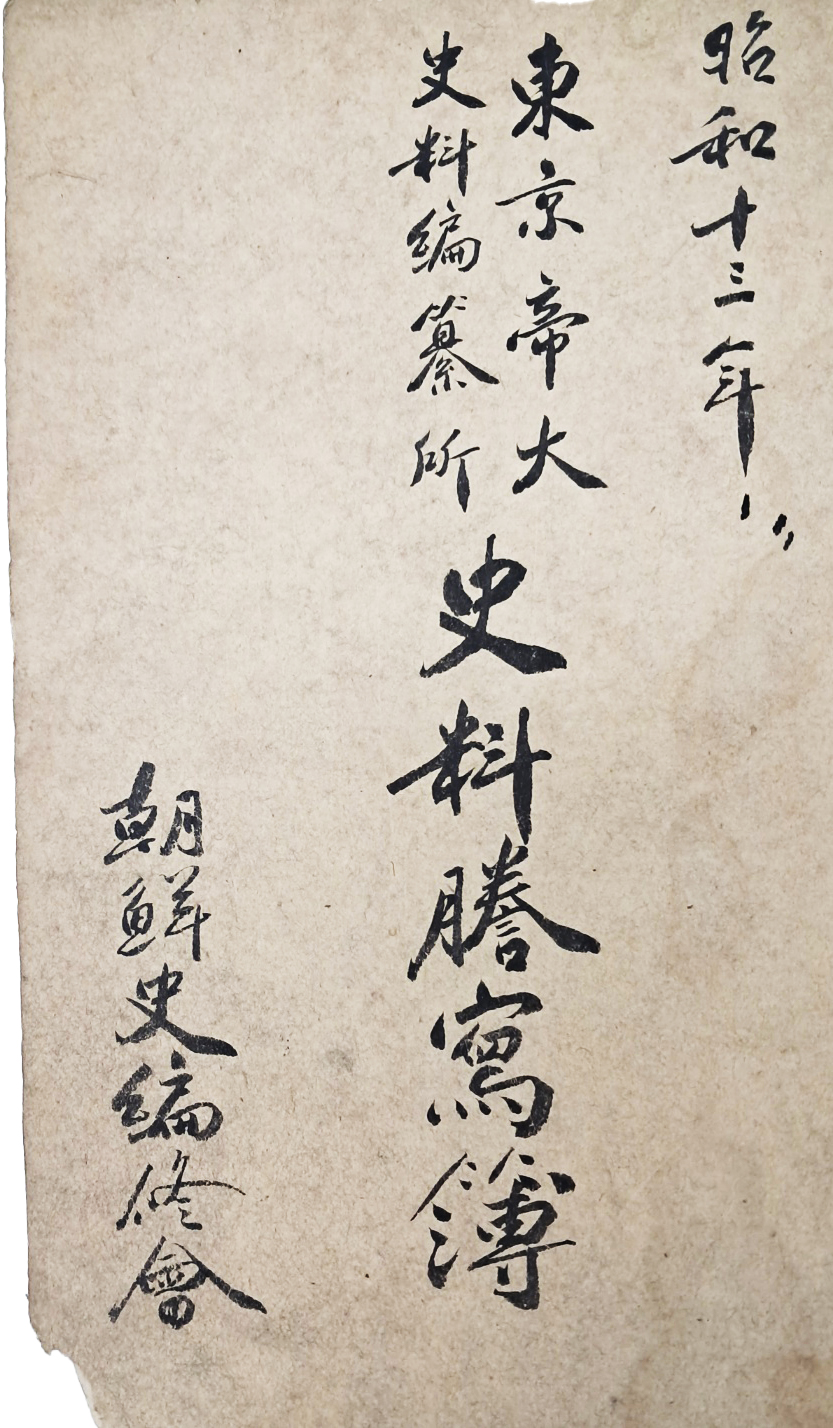 昭和十三年〃
東京帝大
史料編纂所
史料謄寫簿
朝鮮史編修會